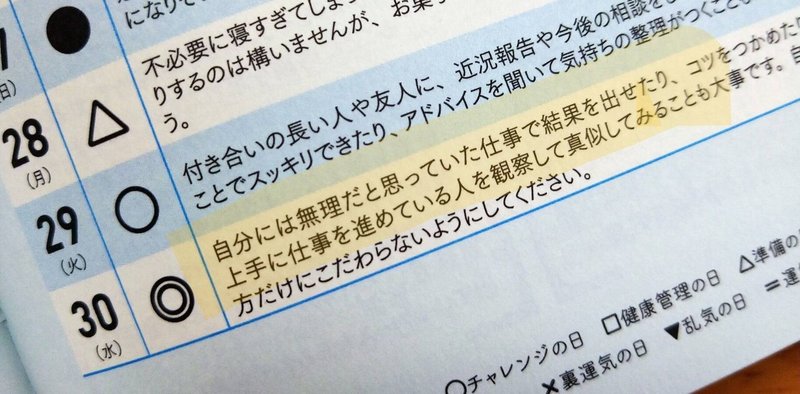 になりそ
(日)
不必要に寝すぎてしま
りするのは構いませんが、お菓
う。
28
(月)
付き合いの長い人や友人に、近況報告や今後の相談を
ことでスッキリできたり、アドバイスを聞いて気持ちの整理がつくことも
29
(火)
自分には無理だと思っていた仕事で結果を出せたり、コツをつかめたり
上手に仕事を進めている人を観察して真似してみることも大事です。自
方だけにこだわらないようにしてください。
30
(水)
○チャレンジの日 □健康管理の日 △準備の
×裏運気の日 ▼乱気の日 =運